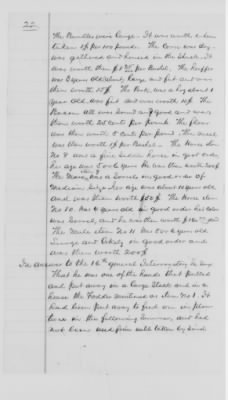 22
The Bundles were large. It was worth when
taken 1$ per 100 pounds. The Corn was dry
was gathered and housed in the Shuck. It
was worth then per Bushel. The heiffer
was 3 years old likely large and fat and was
then worth 15$. The Pork was a hog about 1
year old. was fat and was worth 10$. The
Bacon all was Sound and good and was
then worth 25 cents per pound. The flour
was then worth 5 cents per pound. The meal
was then worth 1$ per Bushel. The Horse Item
No 8 was a fine Saddle horse in good order
his age was 5 or 6 years he was then worth
The Mare was a Sorrel in good order of
Medium Size her age was about 10 years old
and was then worth The Horse Item
No 10 was 6 years old in good order his color
was Sorrel, and he was then worth
The Mule Item No 11 was 5 or 6 years old
large and likely in good order and
was then worth 200$
In answer to the 16th general Interrogatory he says
That he was one of the hands that pulled
and put away in a large Stack and in a
house the Fodder mentioned as Item No 1. It
had been put away to feed on in plow
time in the following Summer, and had
not been used from until taken by said